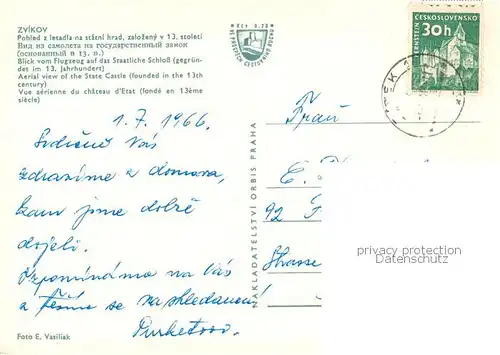 ZVÍKOV
Pohled z letadla na státní hrad, založený v 13. století
Вид из самолета на государственный замок
(основанный в 13. в.)
Blick vom Flugzeug auf das Staatliche Schloß (gegrün-
det im 13. Jahrhundert)
Aerial view of the State Castle (founded in the 13th
century)
Vue aérienne du château d'Etat (fondé en 13ème
siècle)
Kčs 0.70
VE SLUŽBÁCH CESTOVNÍHO RUCHU
ČESKOSLOVENSKO
PERNŠTEJN
30h
1. 7. 1966.
Srdečně Vás
zdravíme z domova,
kam jsme dobře
dojeli.
Vzpomínáme na Vás
a těšíme se na shledanou!
Purketovi
NAKLADATELSTVÍ ORBIS PRAHA
Frau
E.
92 F
Strasse
privacy protection
Datenschutz
Foto E. Vasiliak